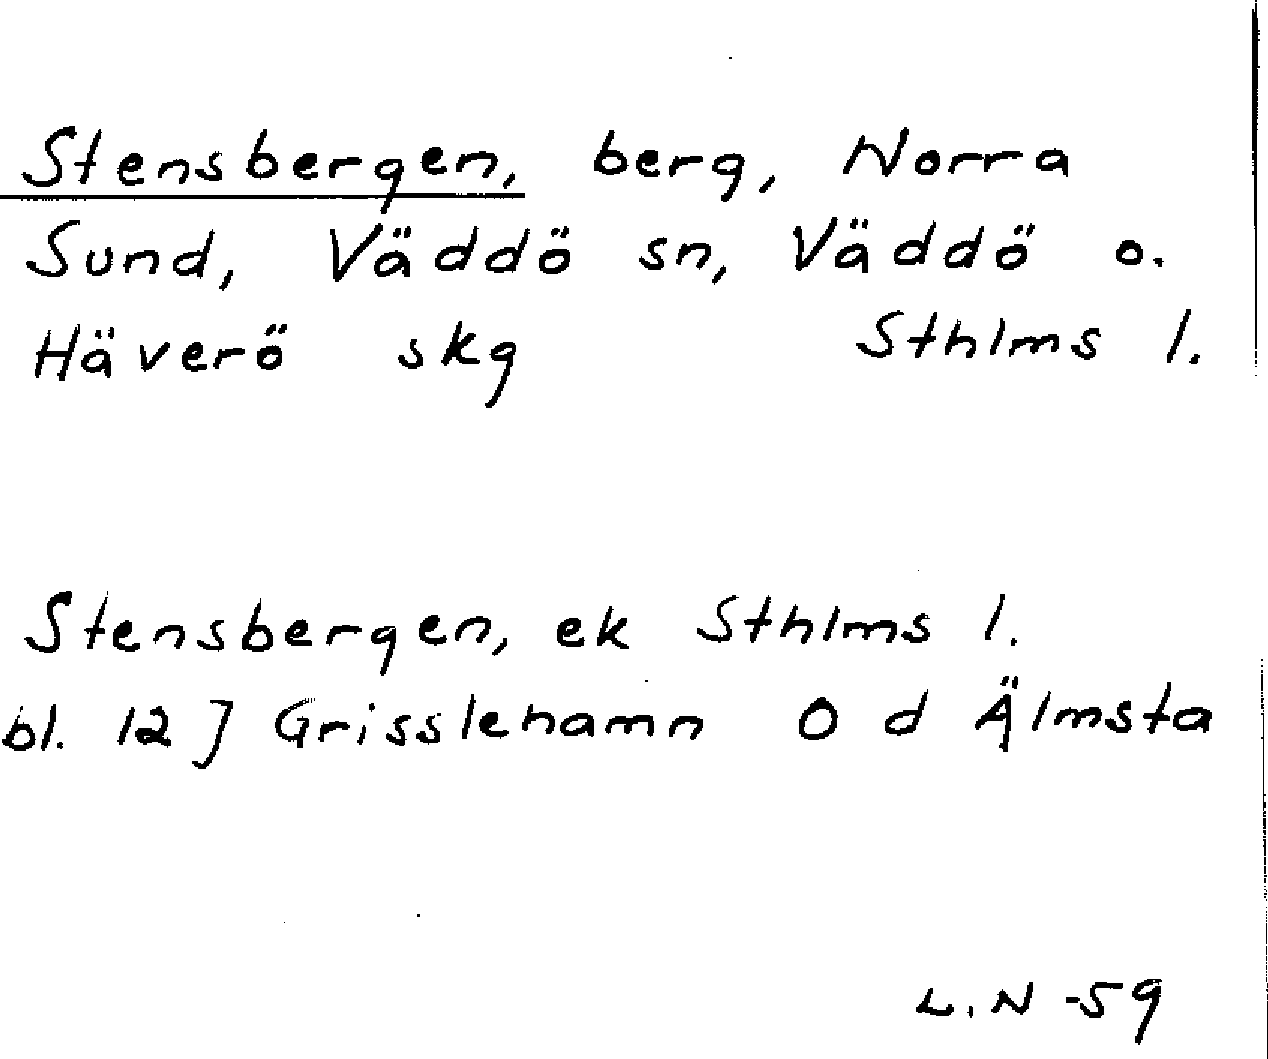 Stensbergen, berg, Norra
Sund, Väddö sn, Väddö o.
Häverö skg Sthlms l.
Stensbergen, ek Sthlms l.
bl. 12 J Grisslehamn O d Älmsta
L.N -59